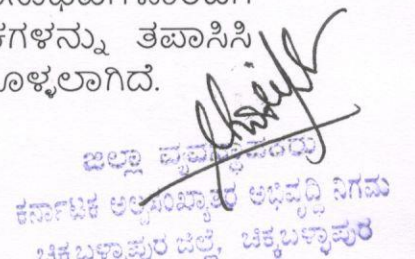 ಗಳನ್ನು ತಪಾಸಿಸಿ
ಳ್ಳಲಾಗಿದೆ.
ಜಿಲ್ಲಾ ವ್ಯವಸ್ಥಾಪಕರು
ಕರ್ನಾಟಕ ಅಲ್ಪಸಂಖ್ಯಾತರ ಅಭಿವೃದ್ಧಿ ನಿಗಮ
ಚಿಕ್ಕಬಳ್ಳಾಪುರ ಜಿಲ್ಲೆ, ಚಿಕ್ಕಬಳ್ಳಾಪುರ